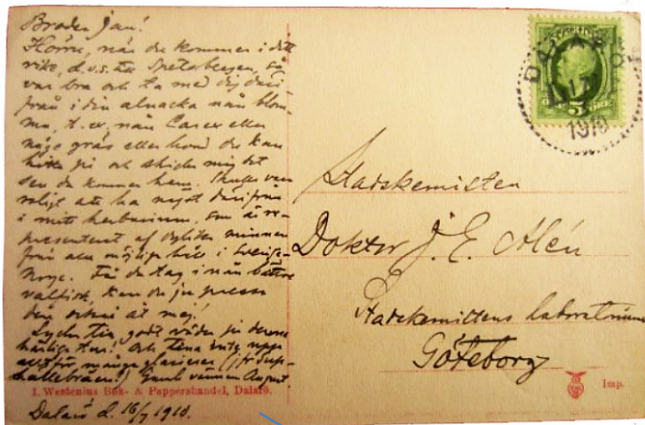 Broder Jan!
Hörru, när du kommer i ditt
rike, d.v.s. till Spetsbergen, så
var bra och ta med dig där-
ifrån i din almacka nån blom-
ma, t.ex. nån Carex eller
något gräs eller hvad du kan
hitta på och skicka mig det
sen du kommer hem. Skulle vara
roligt att ha något därifrån
i mitt herbarium, som är re-
presenterat af dylika minnen
från alla möjliga håll i Sverige-
Norge. Får du tag i nån bättre
växt, kan du ju pressa
den också åt mej!
Lycka till, godt väder på deras
härliga tur! Och
allt för många glaciärer
Gamle vännen August
Dalarö d. 16/7 1910.
I. Westenius Bok- & Pappershandel, Dalarö.
DALARÖ
17
1910
5 ÖRE
Stadskemisten
Doktor J. E. Alén
Stadskemistens laboratorium
Göteborg
Imp.